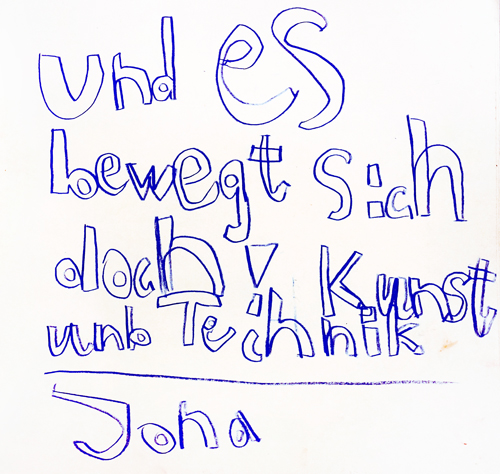 und es
bewegt sich
doch! Kunst
unb Technik
Jona